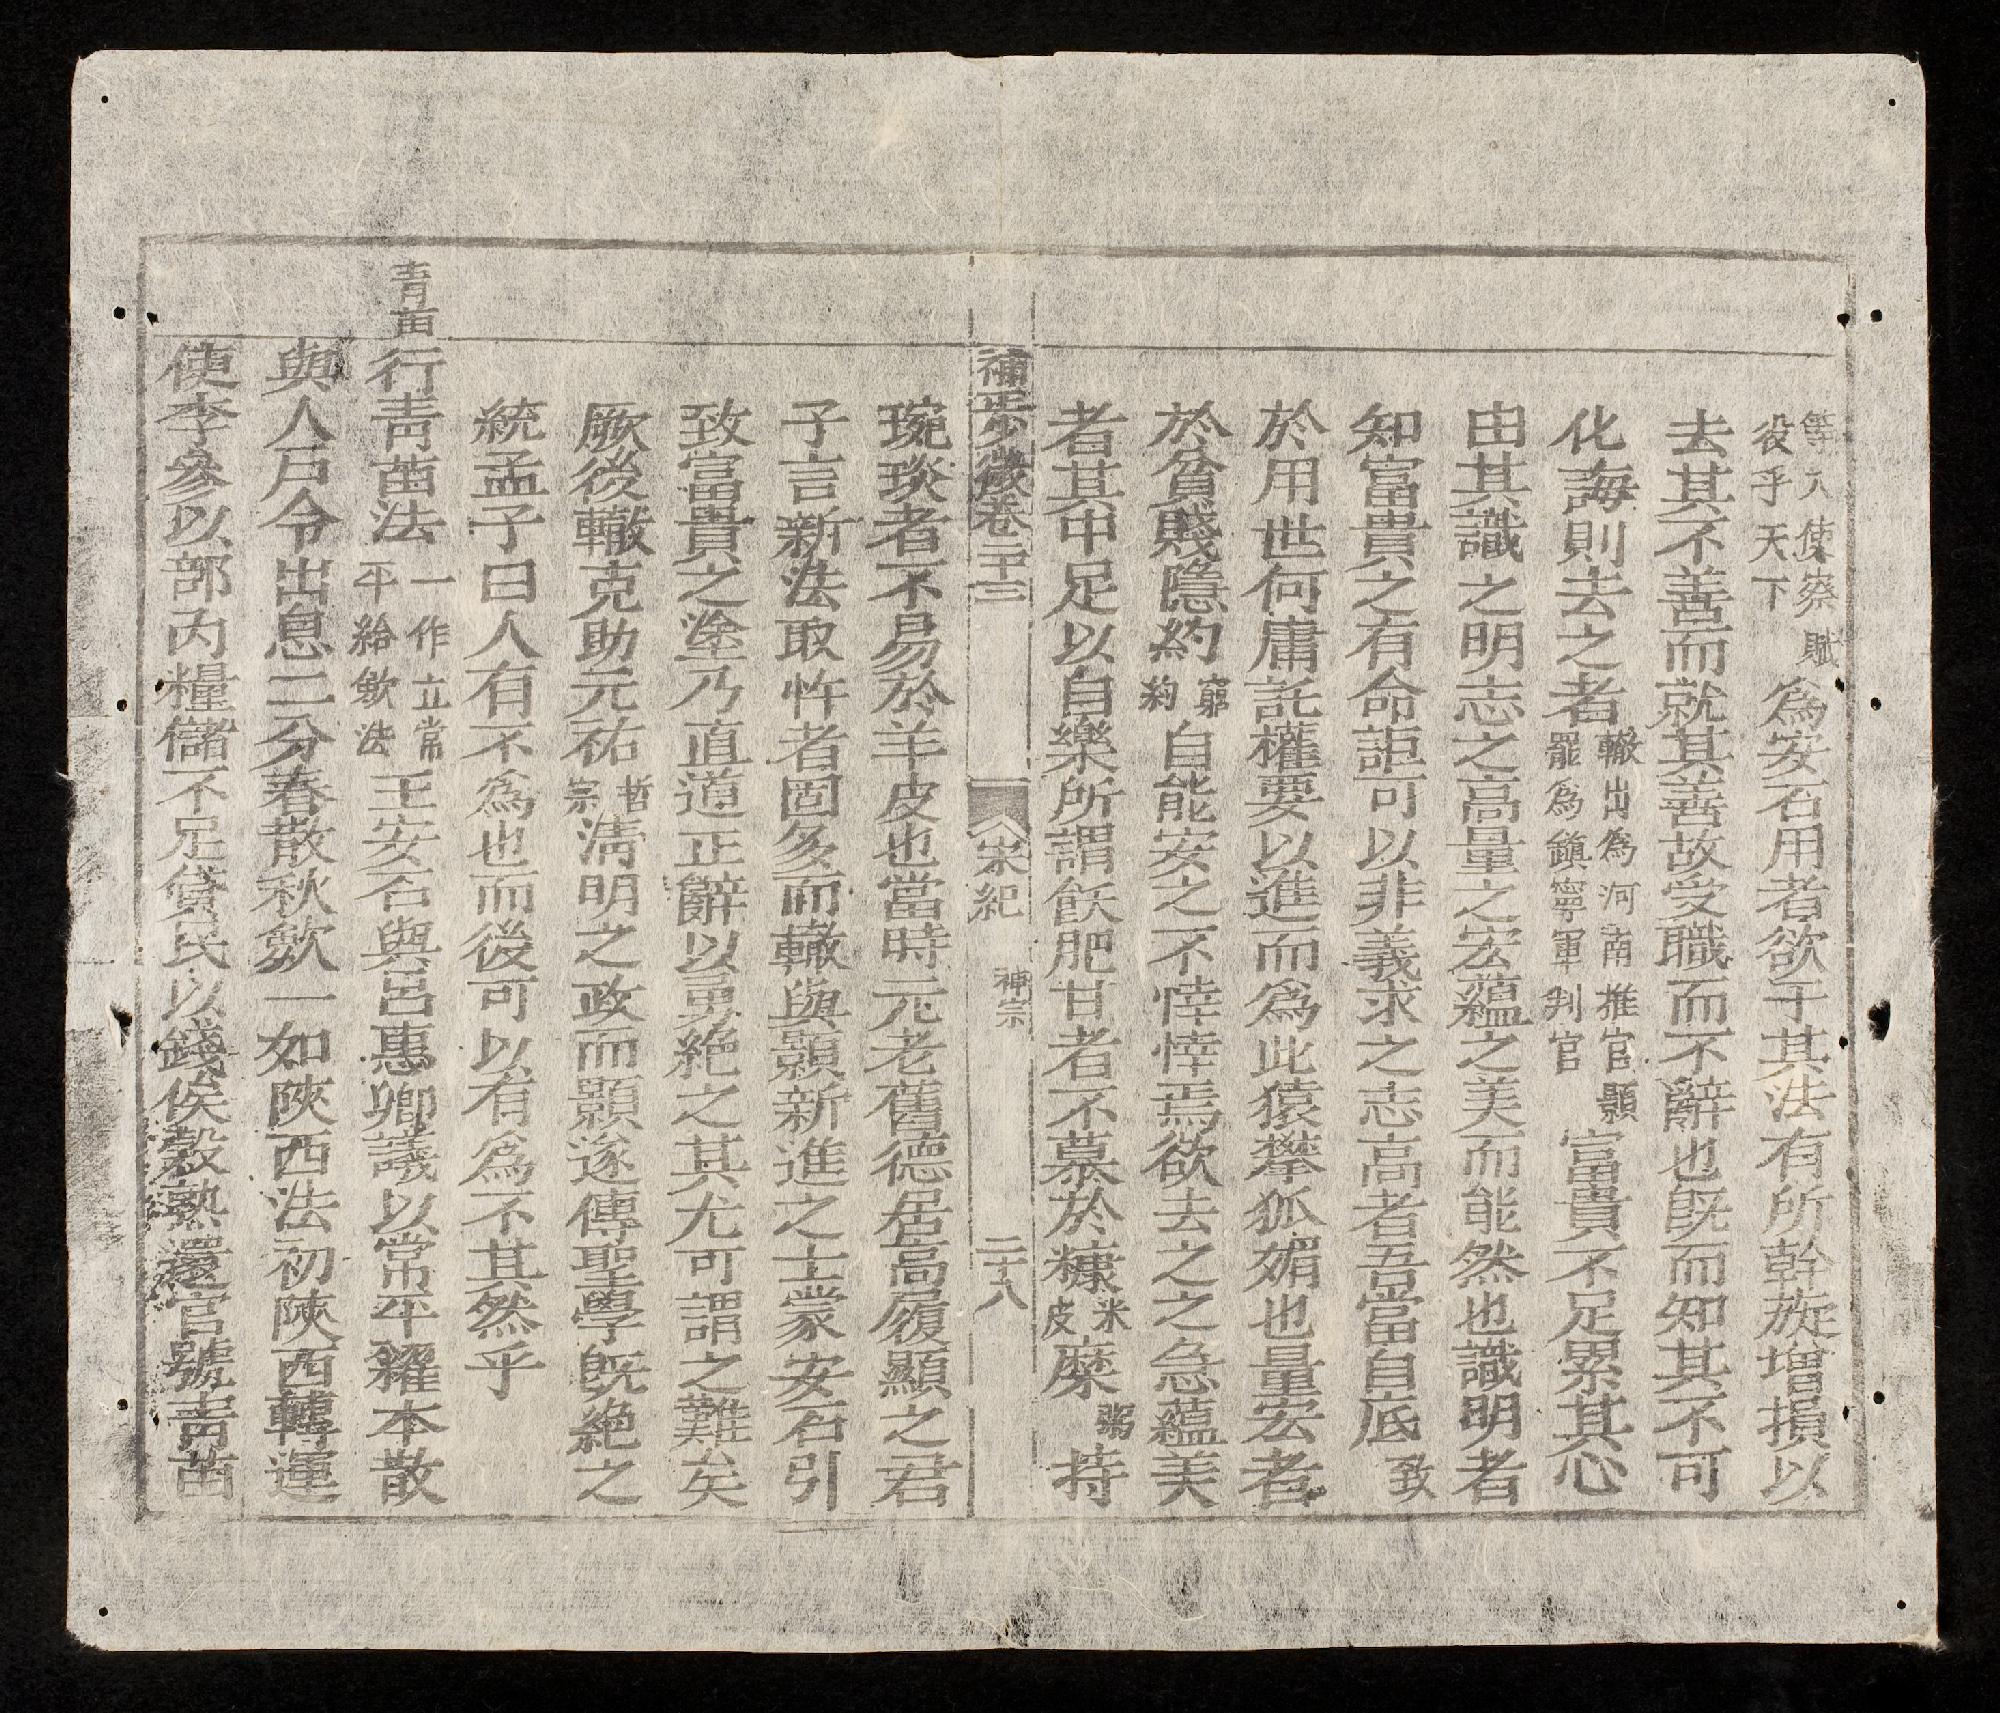 等八使察賦役乎天下為安石用者欲于其法有所幹旋增損以
去其不善而就其善故受職而不辭也旣而知其不可
化誨則去之者轍出為河南推官顥罷為鎮寧軍判官富貴不足累其心
由其識之明志之高量之宏蘊之美而能然也識明者
知富貴之有命詎可以非義求之志高者吾當自底致
於用世何庸託權要以進而為此猿攀狐媚也量宏者
於貧賤隱約窮約自能安之不悻悻焉欲去之之急蘊美
者其中足以自樂所謂飫肥甘者不慕於糠米皮糜粥持
補正少微卷二十三 宋紀 神宗 二十八
琬琰者不易於羊皮也當時元老舊德居高履顯之君
子言新法取忤者固多而轍與顥新進之士蒙安石引
致富貴之塗乃直道正辭以勇絶之其尤可謂之難矣
厥後轍克助元祐哲宗淸明之政而顥遂傳聖學旣絶之
統孟子曰人有不為也而後可以有為不其然乎
青苗
行靑苗法一作立常平給斂法王安石與呂惠卿議以常平糴本散
與人戶令出息二分春散秋斂一如陝西法初陝西轉運
使李參以部內糧儲不足貸民以錢俟穀熟還官號靑苗